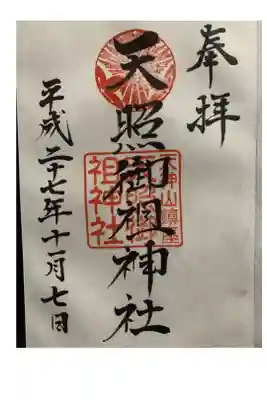 奉拝
天照御祖神社
天神山鎮座
祖神社
平成二十七年十一月七日